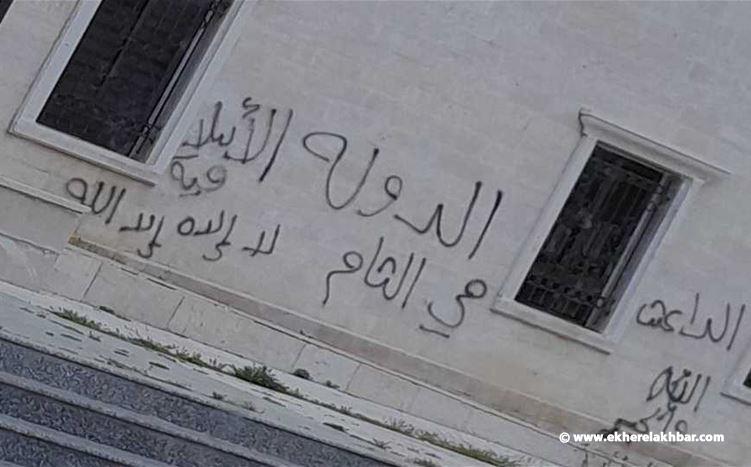 الدوله الأسلا
ميه
في الشام لا إلاه إلا الله
الله
© www.ekherelakhbar.com